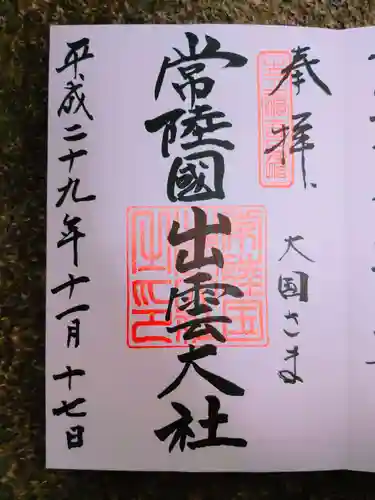 奉拝
大国さま
常陸國出雲大社
平成二十九年十一月十七日